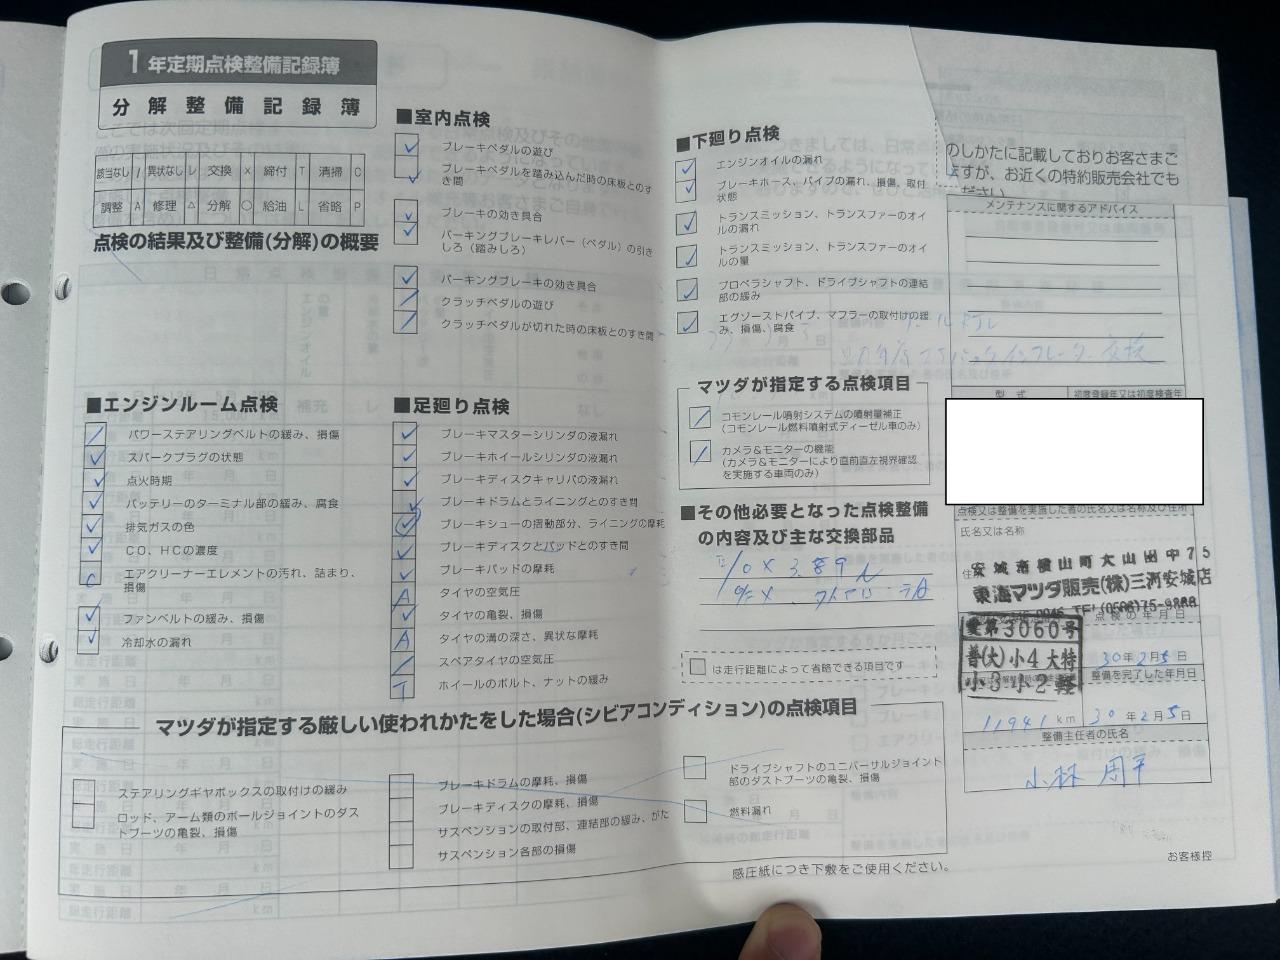 1年定期点検整備記録簿
分解整備記録簿
該当なし / 異状なし レ 交換 × 締付 T 清掃 C
調整 A 修理 △ 分解 ○ 給油 L 省略 P
点検の結果及び整備(分解)の概要
■エンジンルーム点検
パワーステアリングベルトの緩み、損傷
スパークプラグの状態
点火時期
バッテリーのターミナル部の緩み、腐食
排気ガスの色
CO、HCの濃度
エアクリーナーエレメントの汚れ、詰まり、
損傷
ファンベルトの緩み、損傷
冷却水の漏れ
■室内点検
ブレーキペダルの遊び
ブレーキペダルを踏み込んだ時の床板とのす
き間
ブレーキの効き具合
パーキングブレーキレバー(ペダル)の引き
しろ(踏みしろ)
パーキングブレーキの効き具合
クラッチペダルの遊び
クラッチペダルが切れた時の床板とのすき間
■足廻り点検
ブレーキマスターシリンダの液漏れ
ブレーキホイールシリンダの液漏れ
ブレーキディスクキャリパの液漏れ
ブレーキドラムとライニングとのすき間
ブレーキシューの摺動部分、ライニングの摩耗
ブレーキディスクとパッドとのすき間
ブレーキパッドの摩耗
A タイヤの空気圧
タイヤの亀裂、損傷
A タイヤの溝の深さ、異状な摩耗
スペアタイヤの空気圧
T ホイールのボルト、ナットの緩み
■下廻り点検
エンジンオイルの漏れ
ブレーキホース、パイプの漏れ、損傷、取付
状態
トランスミッション、トランスファーのオイ
ルの漏れ
トランスミッション、トランスファーのオイ
ルの量
プロペラシャフト、ドライブシャフトの連結
部の緩み
エグゾーストパイプ、マフラーの取付けの緩
み、損傷、腐食
マツダが指定する点検項目
コモンレール噴射システムの噴射量補正
(コモンレール燃料噴射式ディーゼル車のみ)
カメラ&モニターの機能
(カメラ&モニターにより直前直左視界確認
を実施する車両のみ)
■その他必要となった点検整備
の内容及び主な交換部品
は走行距離によって省略できる項目です
マツダが指定する厳しい使われかたをした場合(シビアコンディション)の点検項目
ステアリングギヤボックスの取付けの緩み
ロッド、アーム類のボールジョイントのダス
トブーツの亀裂、損傷
ブレーキドラムの摩耗、損傷
ブレーキディスクの摩耗、損傷
サスペンションの取付部、連結部の緩み、がた
サスペンション各部の損傷
ドライブシャフトのユニバーサルジョイント
部のダストブーツの亀裂、損傷
燃料漏れ
感圧紙につき下敷をご使用ください。
のしかたに記載しておりお客さまご
ますが、お近くの特約販売会社でも
ださい
メンテナンスに関するアドバイス
型式 初度登録年又は初度検査年
点検又は整備を実施した者の氏名又は名称及び住所
氏名又は名称
安城市横山町大山田中75
東海マツダ販売(株)三河安城店
愛第3060号
普(大)小4大特
小3小2軽
点検の年月日
30年2月5日
整備を完了した年月日
11941 km 30年2月5日
整備主任者の氏名
小林 周平
お客様控